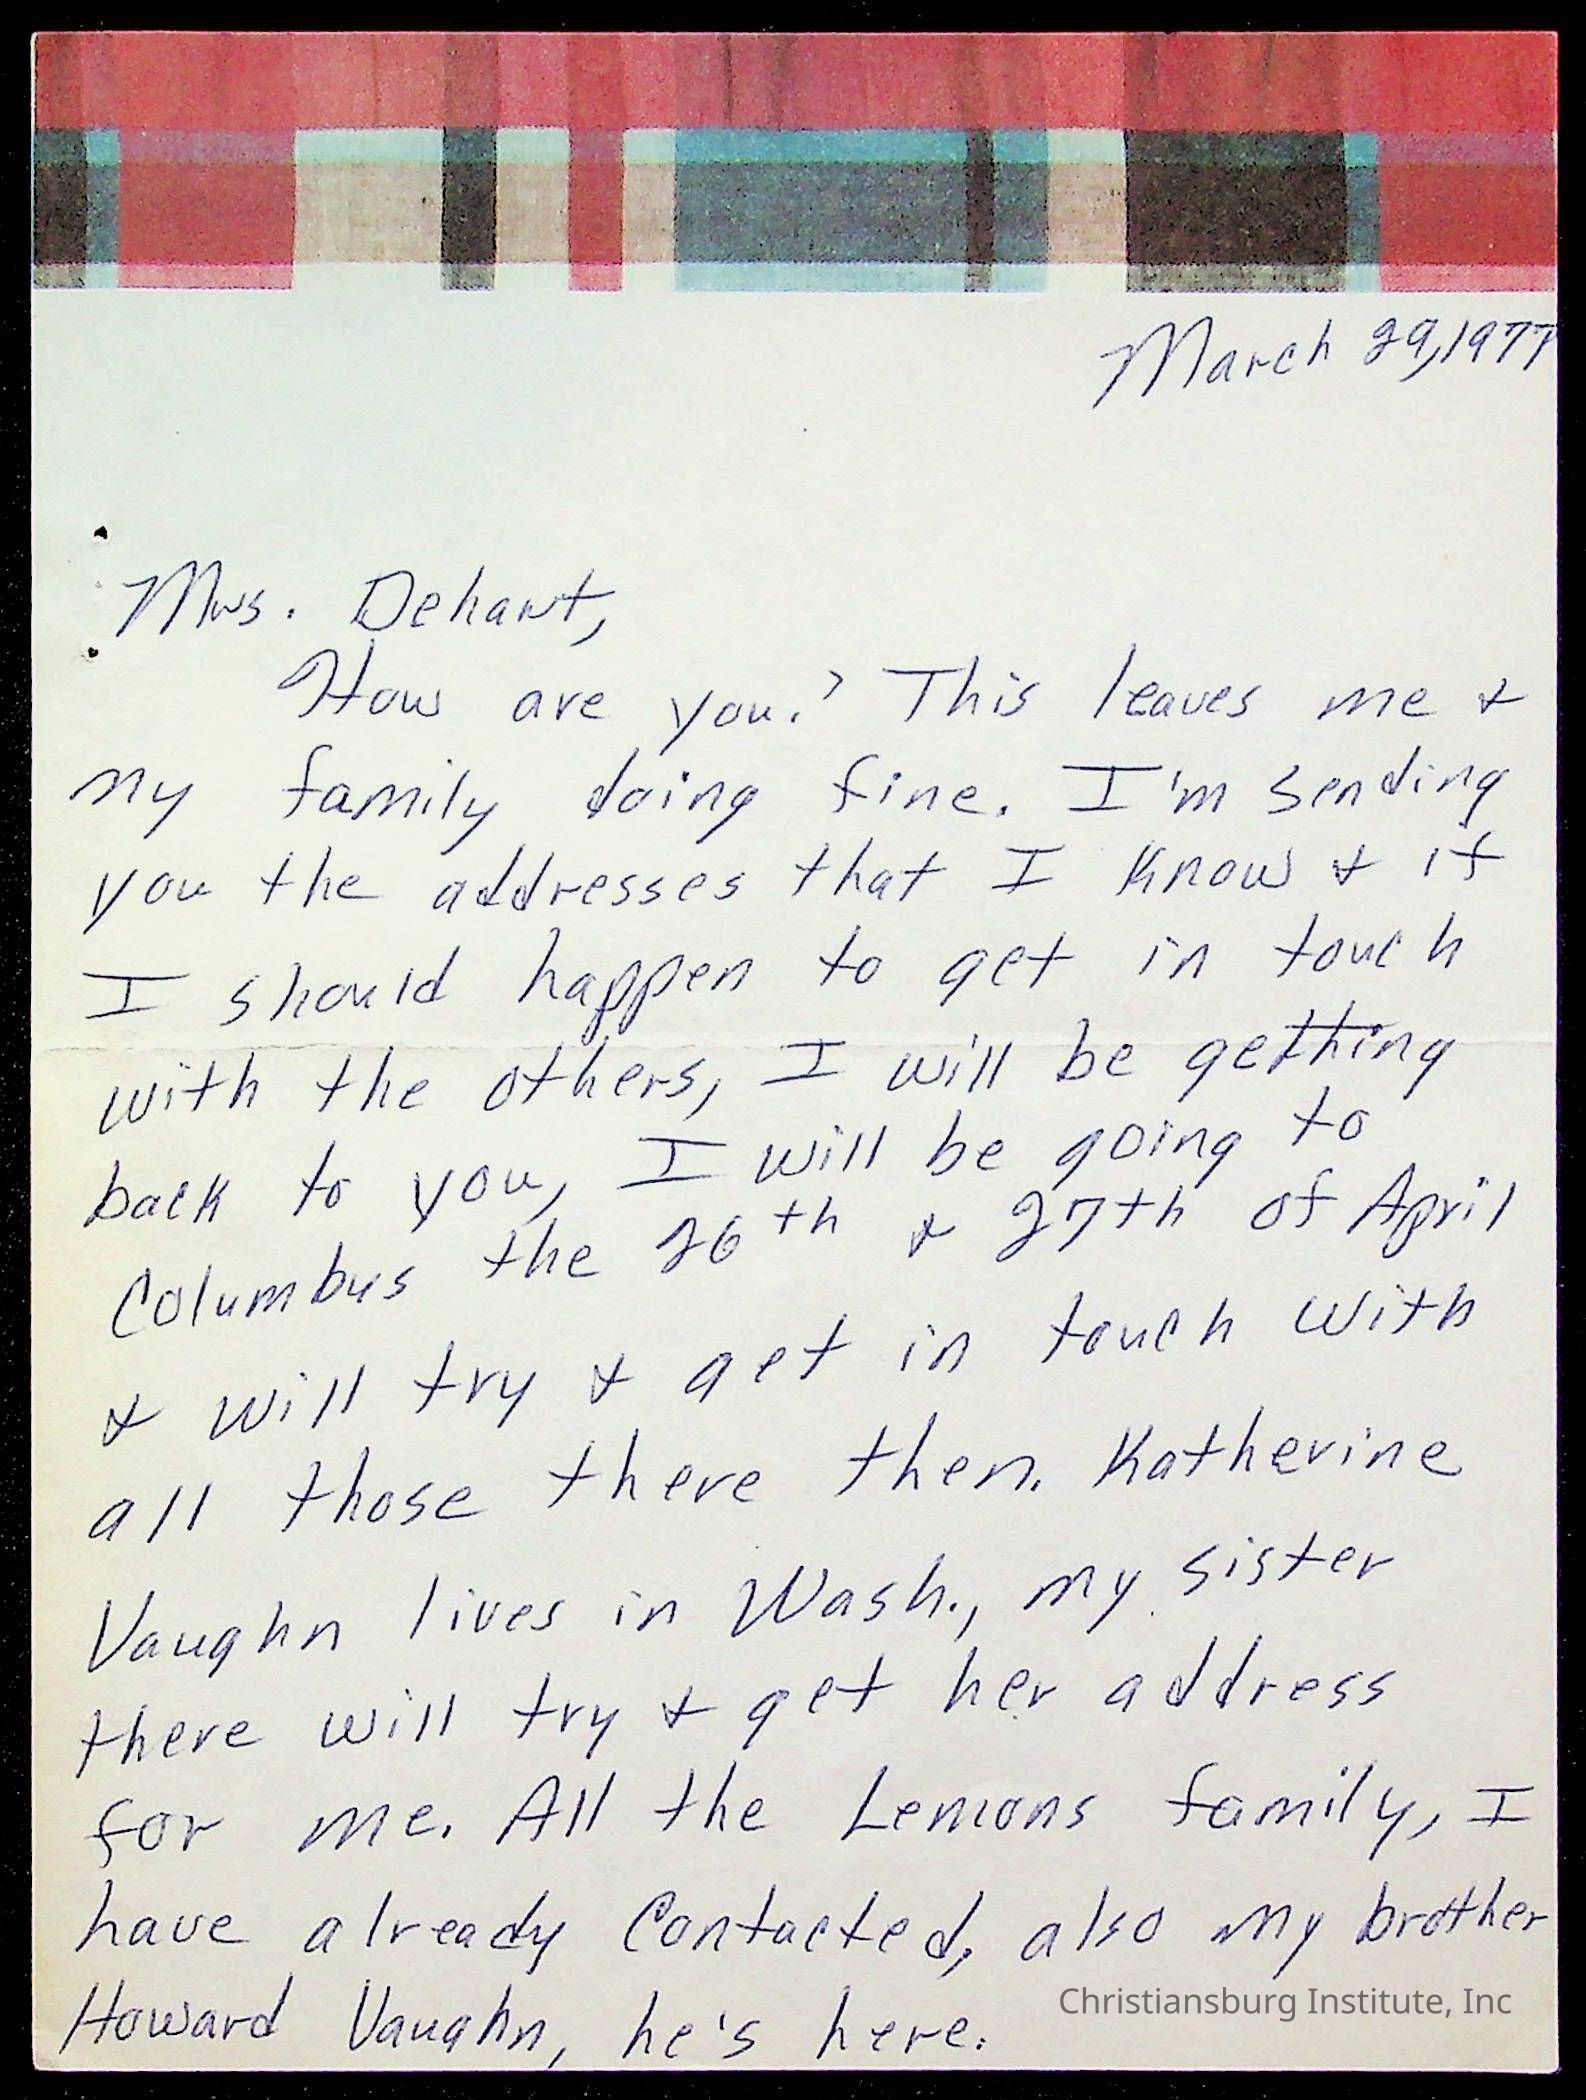 March 29, 1977
Mrs. Dehart,
How are you? This leaves me &
my family doing fine. I'm sending
you the addresses that I know & if
I should happen to get in touch
with the others, I will be getting
back to you, I will be going to
Columbus the 26th & 27th of April
& will try & get in touch with
all those there then. Katherine
Vaughn lives in Wash., my sister
there will try & get her address
for me. All the Lemons family, I
have already Contacted, also my brother
Howard Vaughn, he's here.
Christiansburg Institute, Inc